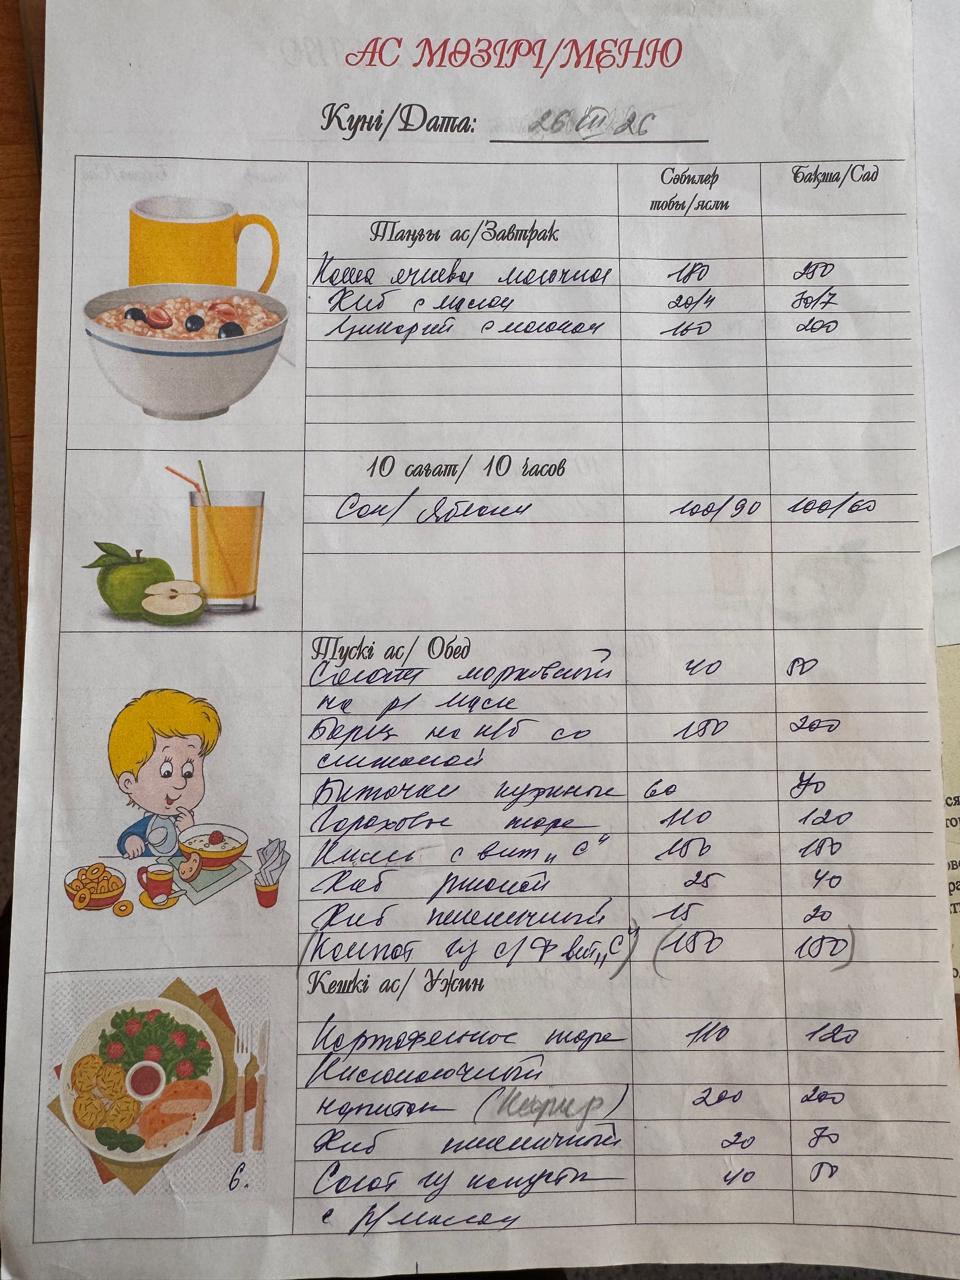 АС МӘЗІРІ/МЕНЮ
Күні/Дата: 26 III 26
Сәбилер тобы/ясли Бақша/Сад
Таңғы ас/Завтрак
Каша ячневая молочная 180 250
Хлеб с маслом 20/4 30/7
Цикорий с молоком 160 200
10 сағат/ 10 часов
Сок/ Яблоки 100/90 100/60
Түскі ас/ Обед
Салат морковный 40 50
на р/ масле
Борщ на к/б со 150 200
сметаной
Биточки куриные 60 70
Гороховое пюре 110 120
Кисель с вит „С" 150 150
Хлеб ржаной 25 40
Хлеб пшеничный 15 20
(Компот из с/ф вит„С") (150 150)
Кешкі ас/ Ужин
Картофельное пюре 110 120
Кисломолочный
напиток (Кефир) 200 200
Хлеб пшеничный 20 30
Салат из капусты 40 50
с р/маслом
6.